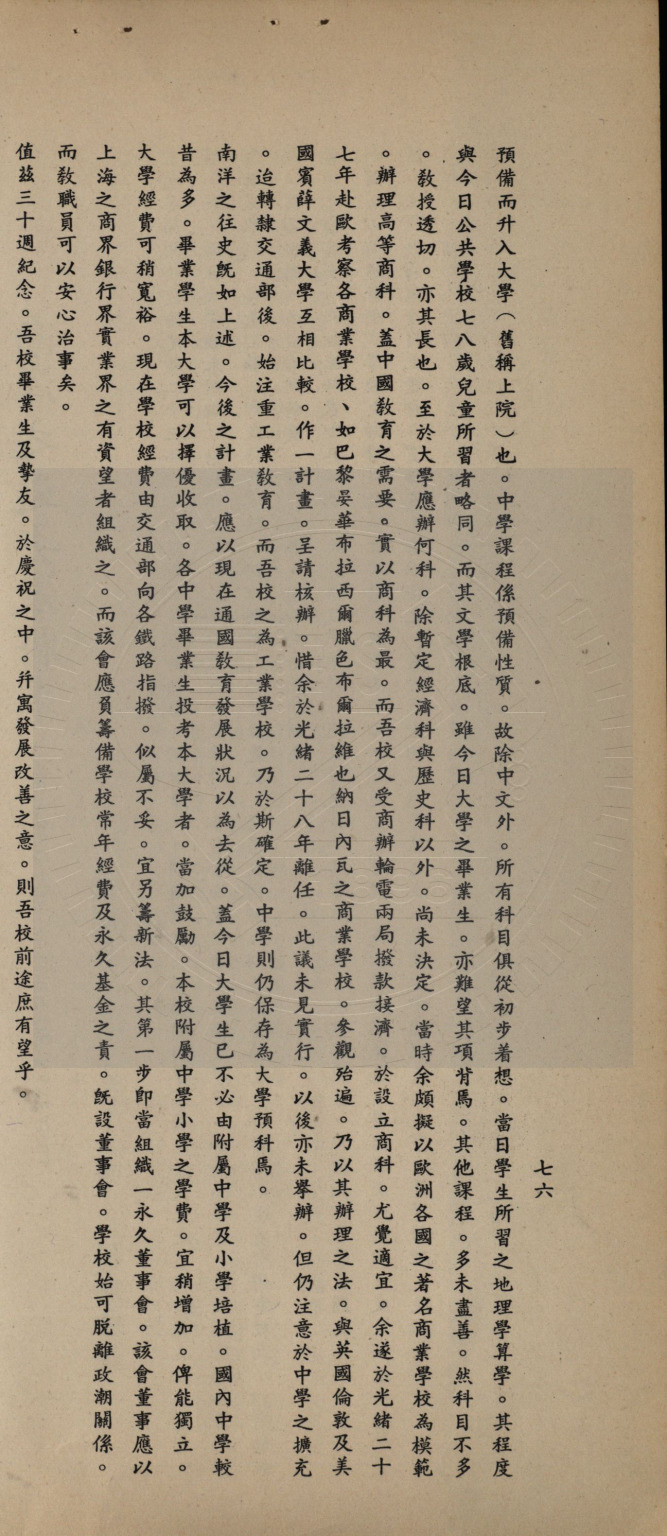 七六
預備而升入大學（舊稱上院）也。中學課程係預備性質。故除中文外。所有科目俱從初步着想。當日學生所習之地理學算學。其程度
與今日公共學校七八歲兒童所習者略同。而其文學根底。雖今日大學之畢業生。亦難望其項背焉。其他課程。多未盡善。然科目不多
。教授透切。亦其長也。至於大學應辦何科。除暫定經濟科與歷史科以外。尚未決定。當時余頗擬以歐洲各國之著名商業學校為模範
。辦理高等商科。蓋中國教育之需要。實以商科為最。而吾校又受商辦輪電兩局撥款接濟。於設立商科。尤覺適宜。余遂於光緒二十
七年赴歐考察各商業學校、如巴黎晏華布拉西爾臘色布爾拉維也納日內瓦之商業學校。參觀殆遍。乃以其辦理之法。與英國倫敦及美
國賓薛文義大學互相比較。作一計畫。呈請核辦。惜余於光緒二十八年離任。此議未見實行。以後亦未舉辦。但仍注意於中學之擴充
。迨轉隸交通部後。始注重工業教育。而吾校之為工業學校。乃於斯確定。中學則仍保存為大學預科焉。
南洋之往史既如上述。今後之計畫。應以現在通國教育發展狀況以為去從。蓋今日大學生已不必由附屬中學及小學培植。國內中學較
昔為多。畢業學生本大學可以擇優收取。各中學畢業生投考本大學者。當加鼓勵。本校附屬中學小學之學費。宜稍增加。俾能獨立。
大學經費可稍寬裕。現在學校經費由交通部向各鐵路指撥。似屬不妥。宜另籌新法。其第一步即當組織一永久董事會。該會董事應以
上海之商界銀行界實業界之有資望者組織之。而該會應負籌備學校常年經費及永久基金之責。既設董事會。學校始可脫離政潮關係。
而教職員可以安心治事矣。
值茲三十週紀念。吾校畢業生及摯友。於慶祝之中。幷寓發展改善之意。則吾校前途庶有望乎。